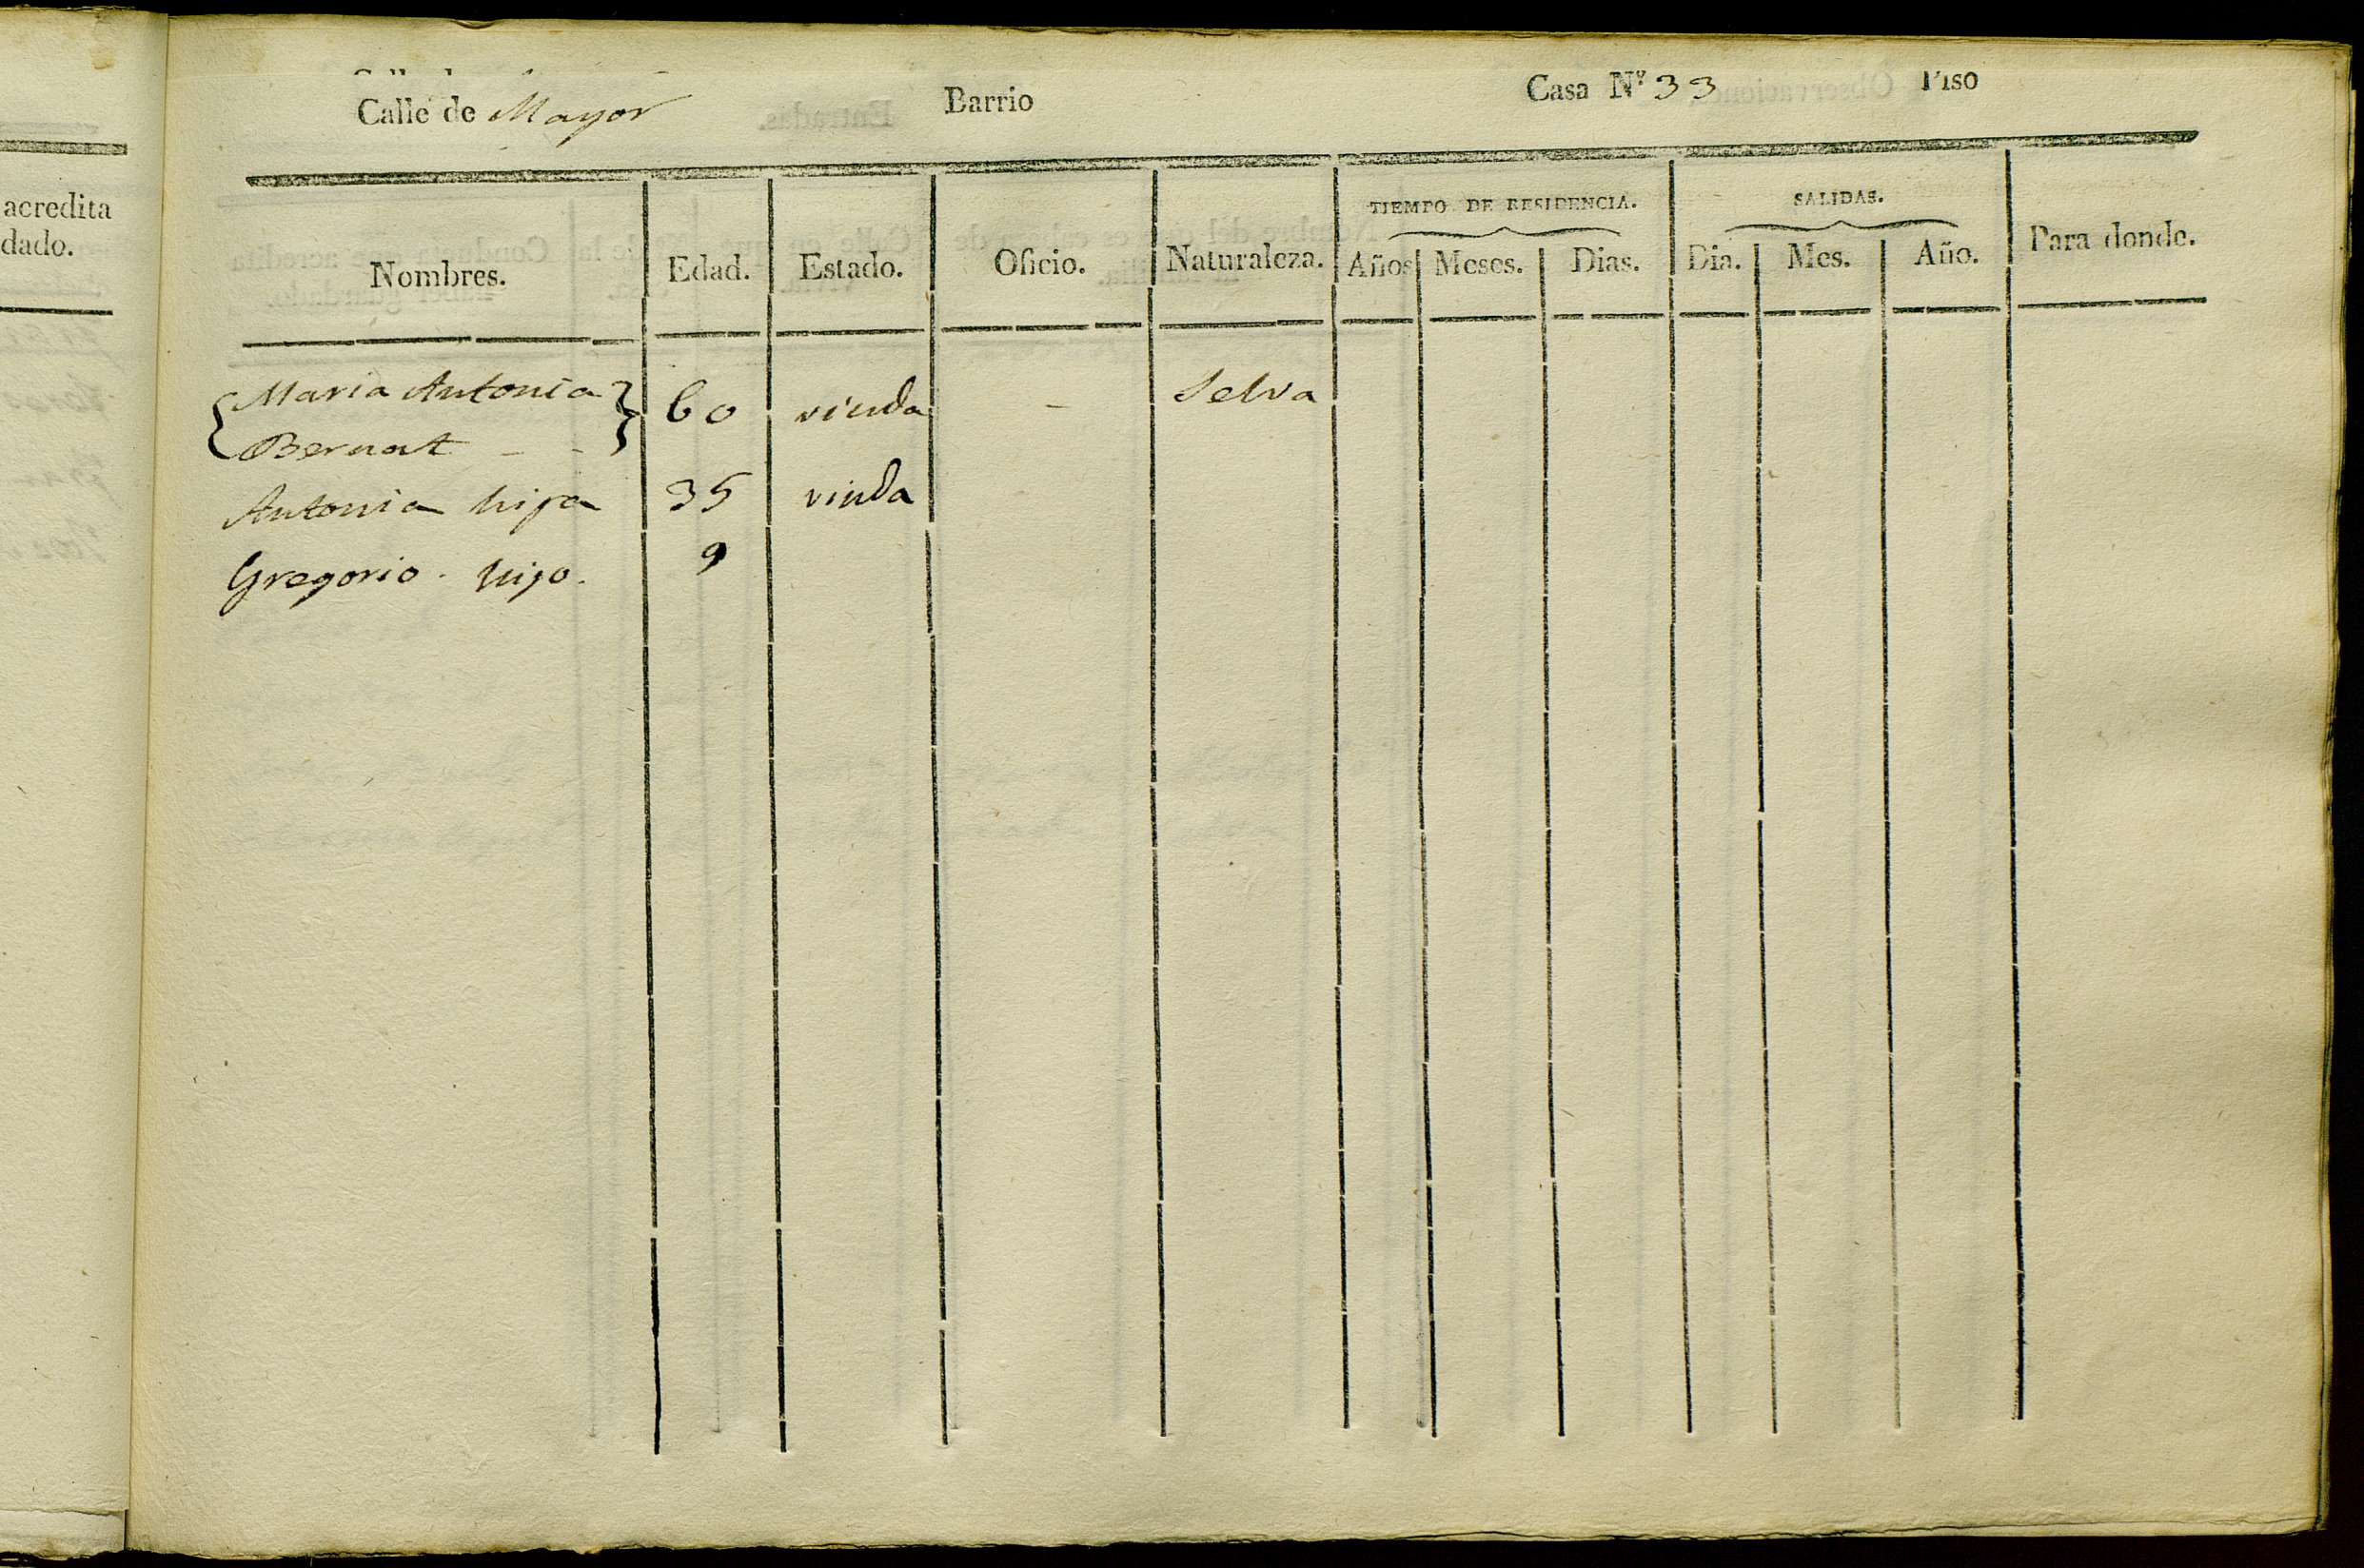 acredita
dado.
Calle de Mayor Barrio Casa Nº 33 Piso
TIEMPO DE RESIDENCIA. SALIDAS.
Nombres. Edad. Estado. Oficio. Naturaleza. Años Meses. Dias. Dia. Mes. Año. Para donde.
{Maria Antonia
Bernat - -} 60 viuda - Selva
Antonia hija 35 viuda
Gregorio. hijo. 9